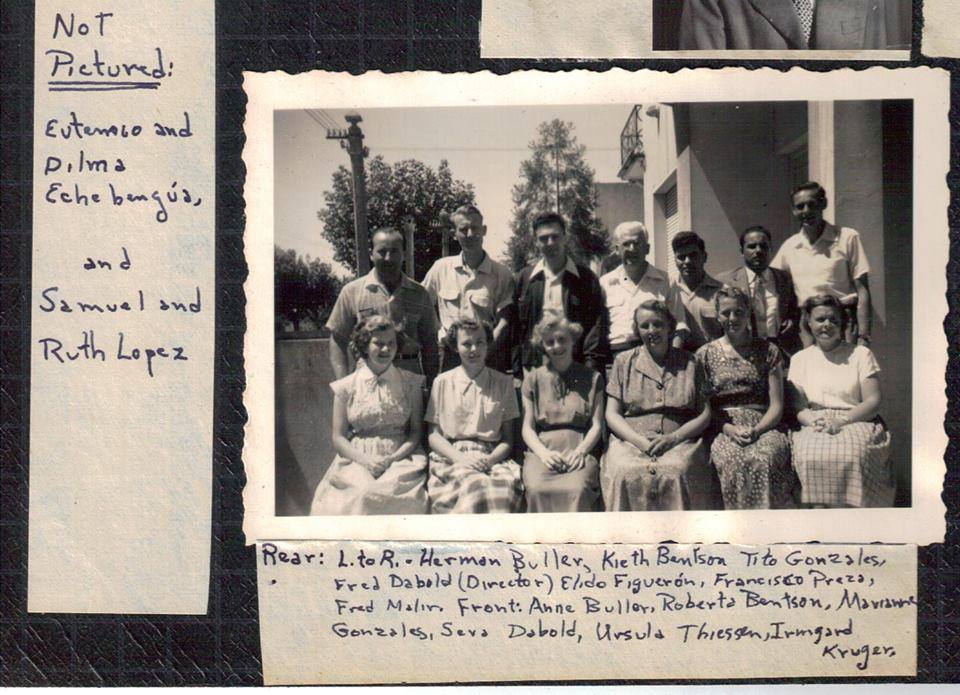 Not
Pictured:
Eutemio and
Dilma
Echebengúa,
and
Samuel and
Ruth Lopez
Rear: L. to R. - Herman Buller, Kieth Bentson Tito Gonzales,
Fred Dabold (Director) Eldo Figuerón, Francisco Preza,
Fred Malir. Front: Anne Buller, Roberta Bentson, Marianne
Gonzales, Seva Dabold, Ursula Thiessen, Irmgard
Kruger.